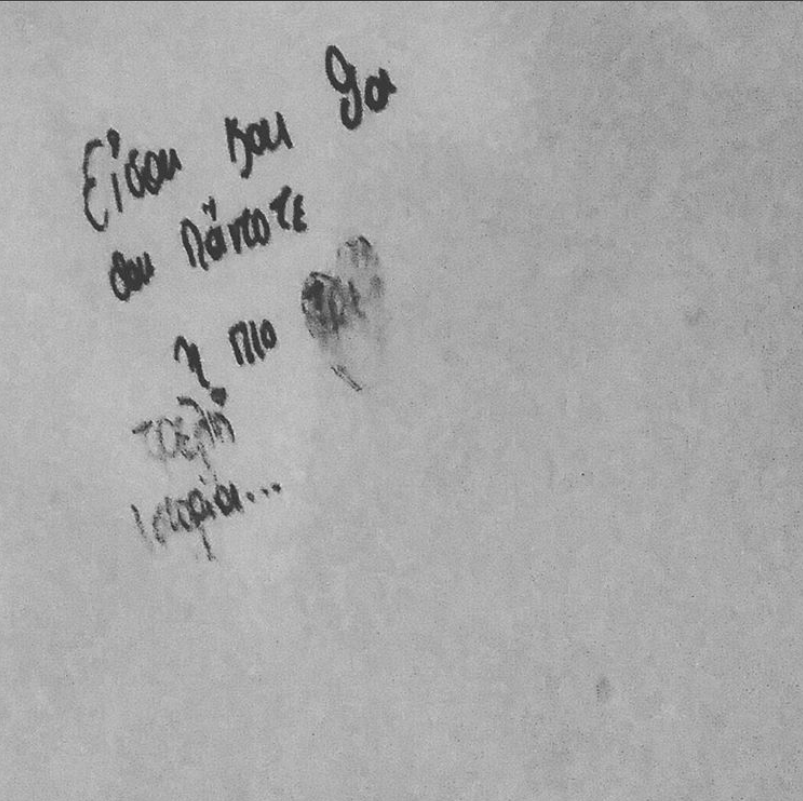 Είσαι και θα
σαι πάντοτε
η πιο
τρελή
ιστορία...